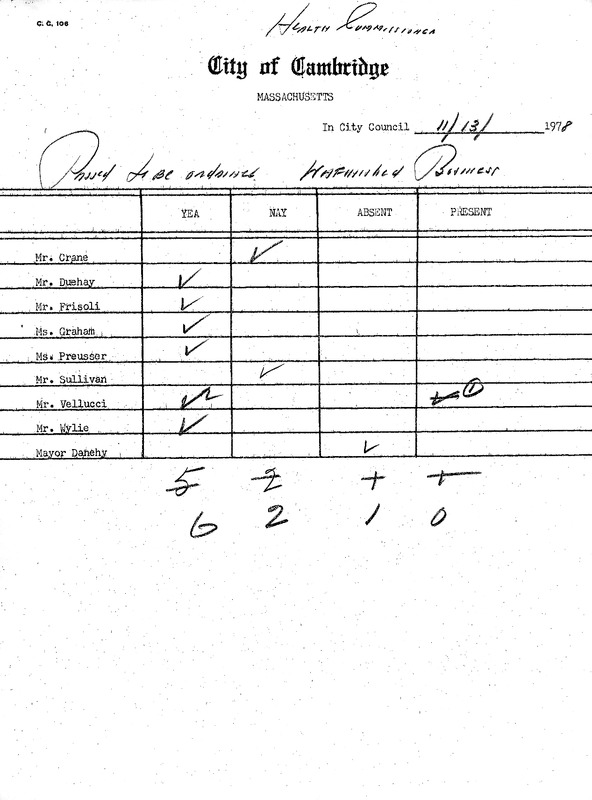 C. C. 106
Health Commissioner
City of Cambridge
MASSACHUSETTS
In City Council 11/13/ 1978
Passed to be ordained Unfinished Business
YEA NAY ABSENT PRESENT
Mr. Crane ✓
Mr. Duehay ✓
Mr. Frisoli ✓
Ms. Graham ✓
Ms. Preusser ✓
Mr. Sullivan ✓
Mr. Vellucci ✓ 2 ✓ 1
Mr. Wylie ✓
Mayor Danehy ✓
5 2 1 1
6 2 1 0